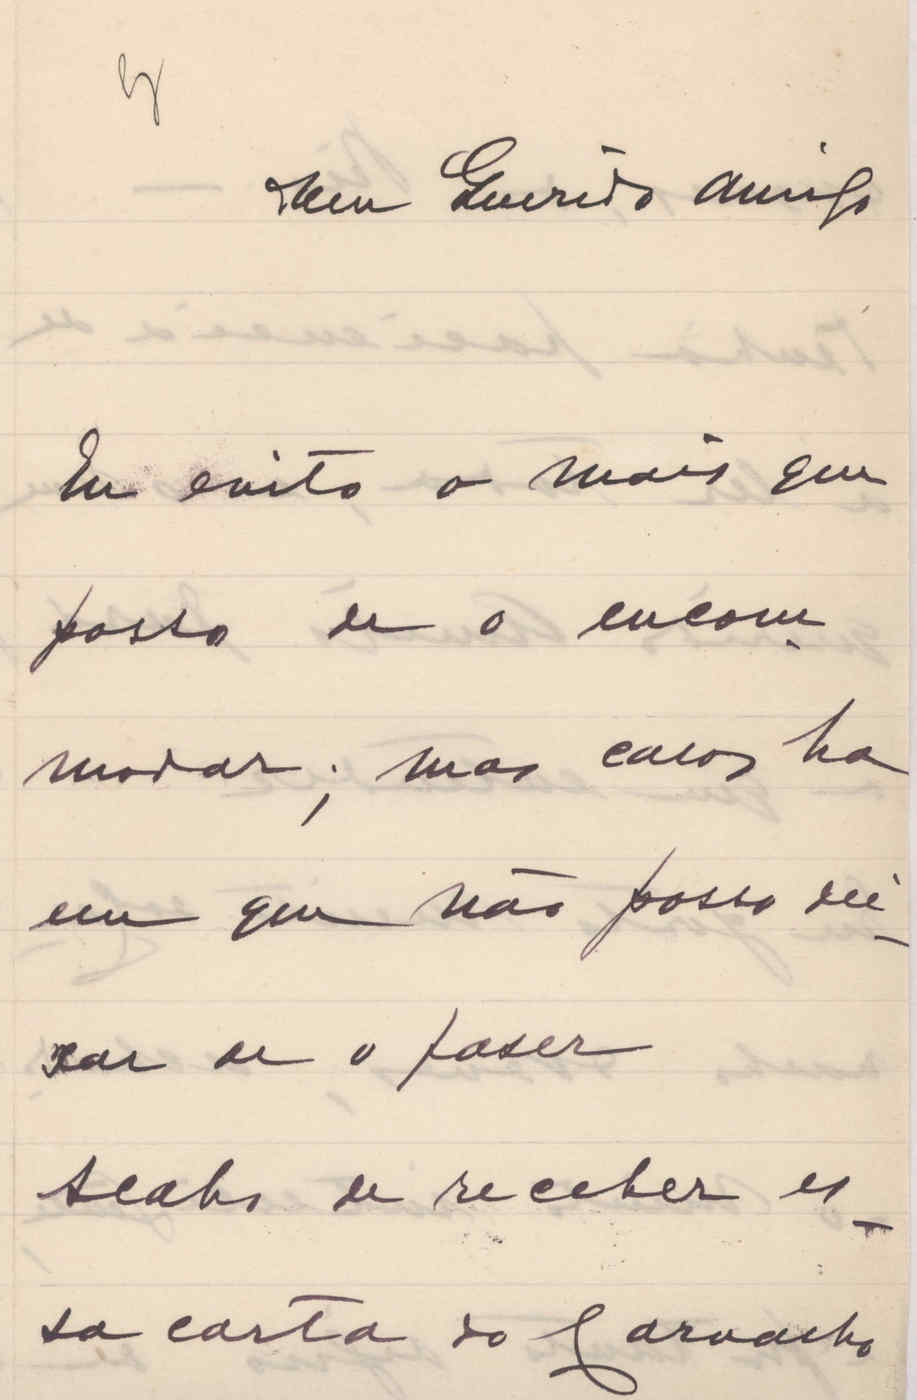 Meu Querido Amigo
Eu evito o mais que
posso de o encom-
modar; mas casos ha
em que não posso dei-
xar de o faser
Acabo de receber es-
sa carta do Carvalho